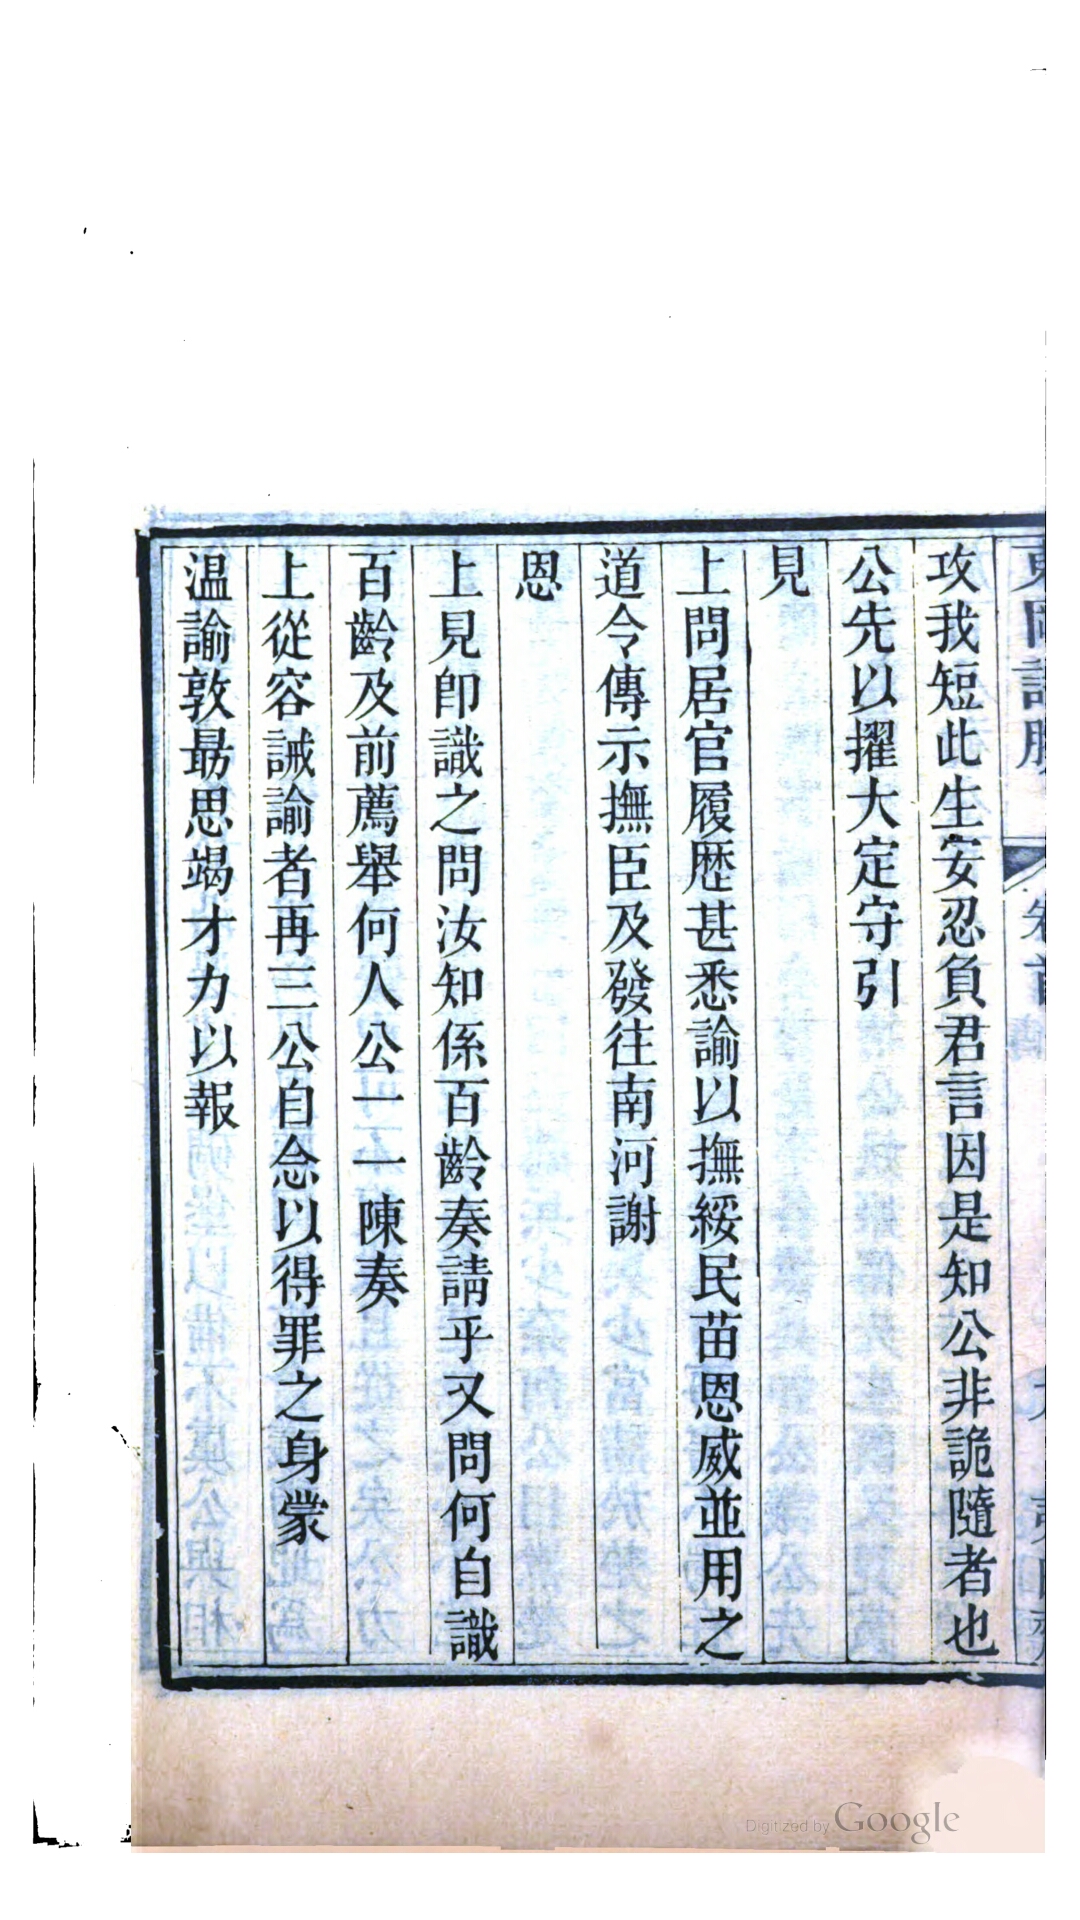 攻我短此生安忍負君言因是知公非詭隨者也
公先以擢大定守引
見
上問居官履歴甚悉諭以撫綏民苗恩威並用之
道令傳示撫臣及發往南河謝
恩
上見卽識之問汝知係百齡奏請乎又問何自識
百齡及前薦舉何人公一一陳奏
上從容誡諭者再三公自念以得罪之身蒙
温諭敦朂思竭才力以報
Digitized by Google